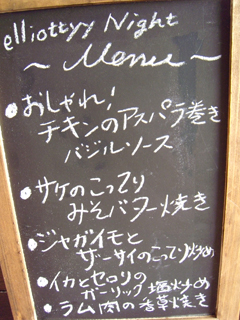 elliottyy Night
～ Menu ～
●おしゃれ！
チキンのアスパラ巻き
バジルソース
●サケのこってり
みそバター焼き
●ジャガイモと
ザーサイのこってり炒め
●イカとセロリの
ガーリック塩炒め
●ラム肉の香草焼き